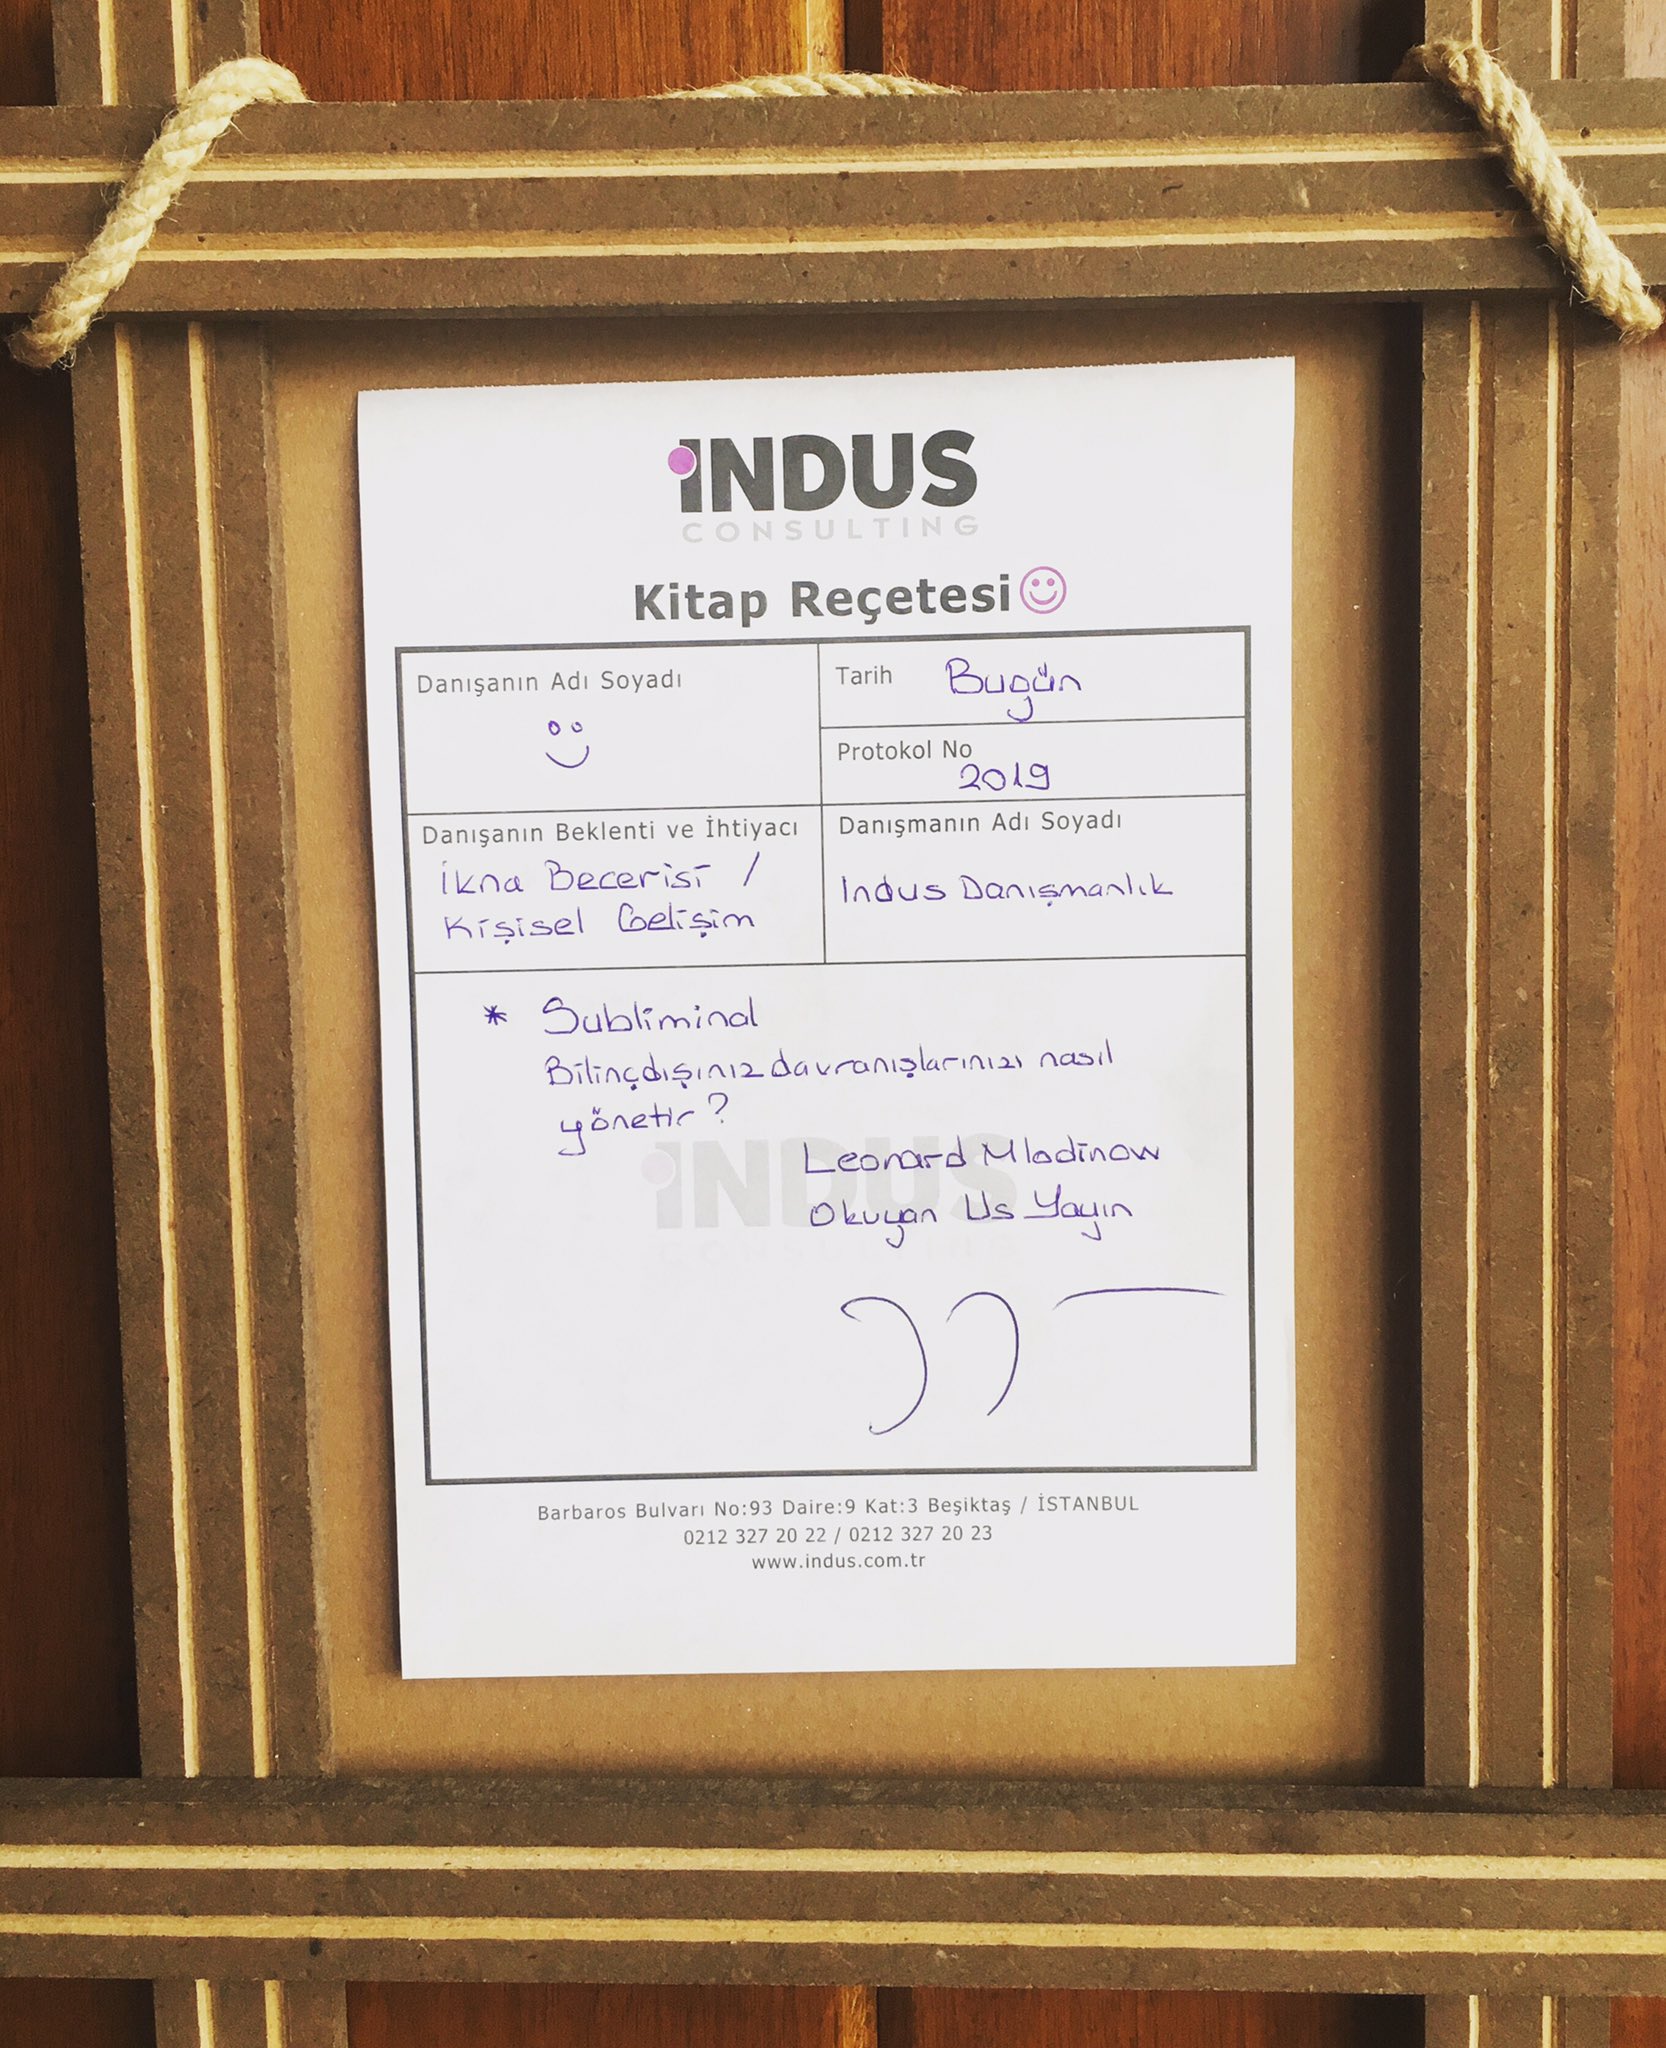 iNDUS
CONSULTING
Kitap Reçetesi
Danışanın Adı Soyadı
Tarih Bugün
Protokol No
2019
Danışanın Beklenti ve İhtiyacı
İkna Becerisi /
Kişisel Gelişim
Danışmanın Adı Soyadı
Indus Danışmanlık
* Subliminal
Bilinçdışınız davranışlarınızı nasıl
yönetir?
Leonard Mlodinow
Okuyan Us Yayın
iNDUS
CONSULTING
Barbaros Bulvarı No:93 Daire:9 Kat:3 Beşiktaş / İSTANBUL
0212 327 20 22 / 0212 327 20 23
www.indus.com.tr